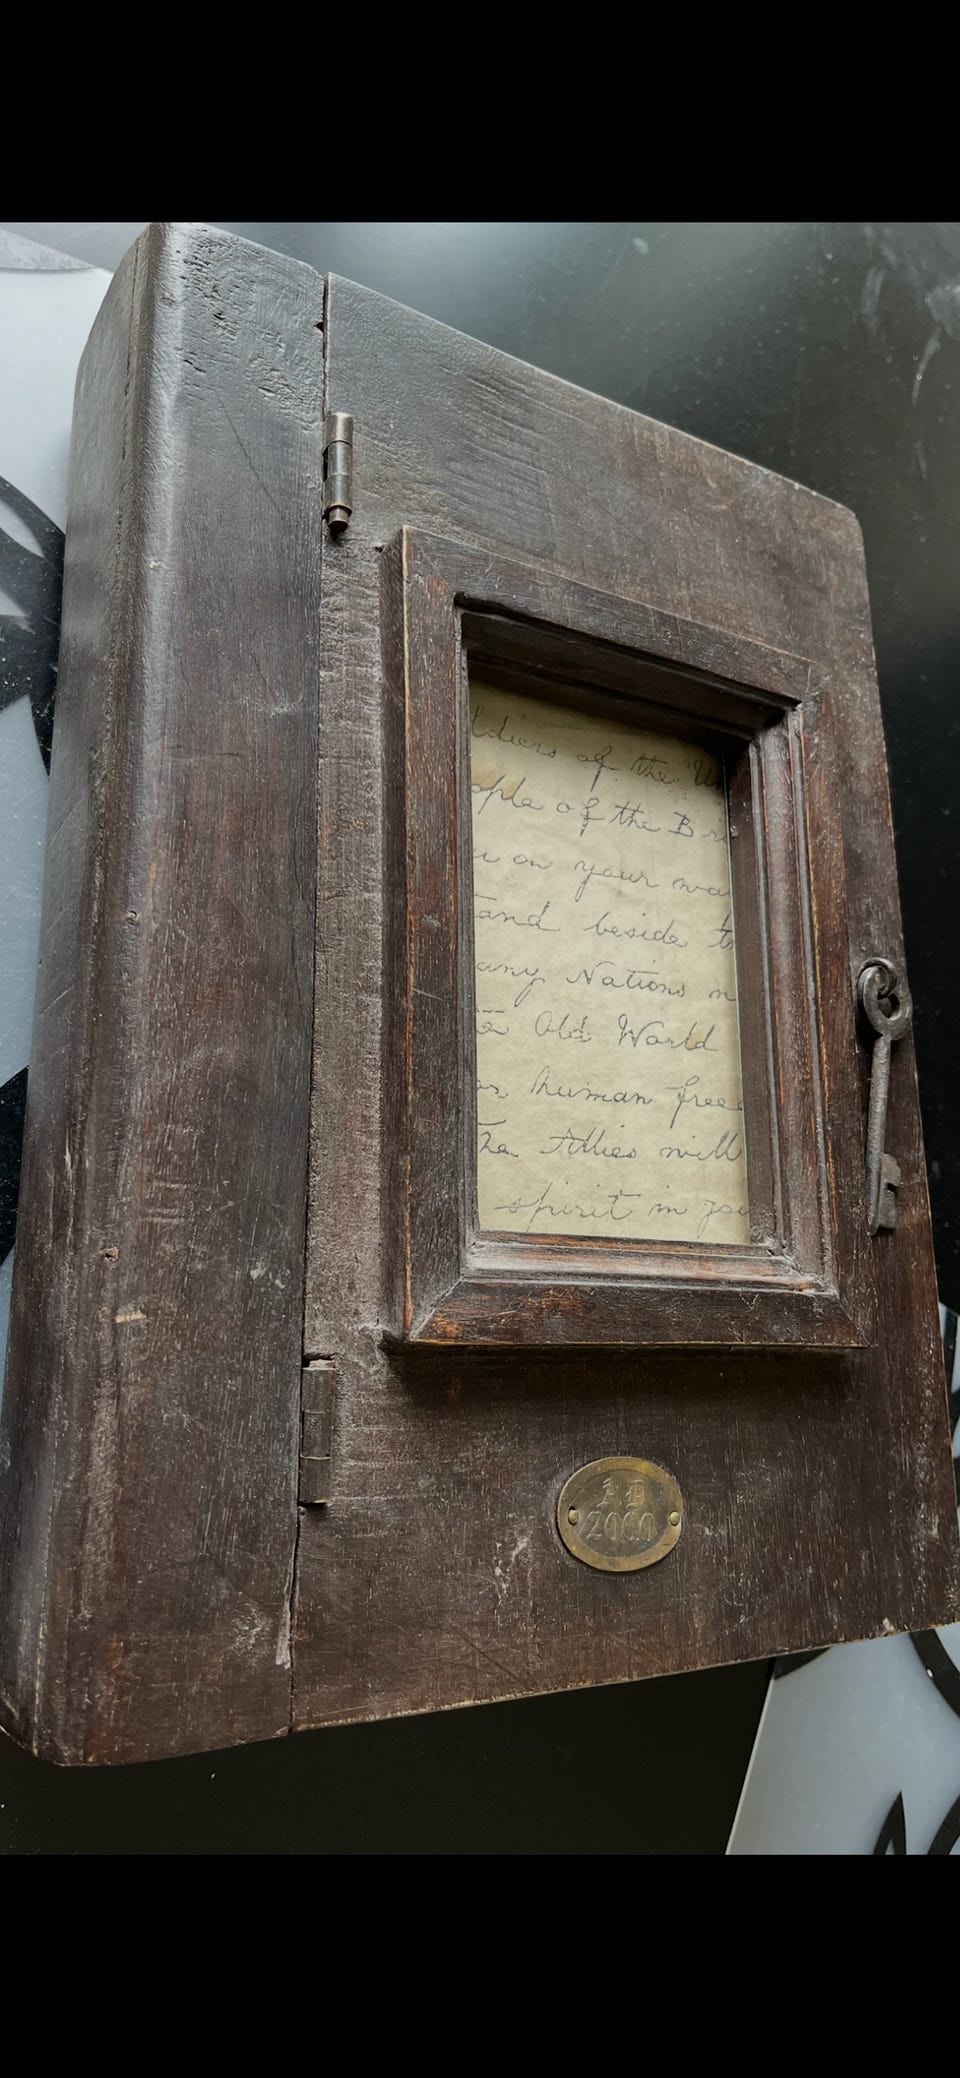 ldiers of the Un
ople of the Bri
u on your wa
tand beside th
any Nations n
te Old World
or human free
The Allies will
spirit in you
AD
2000